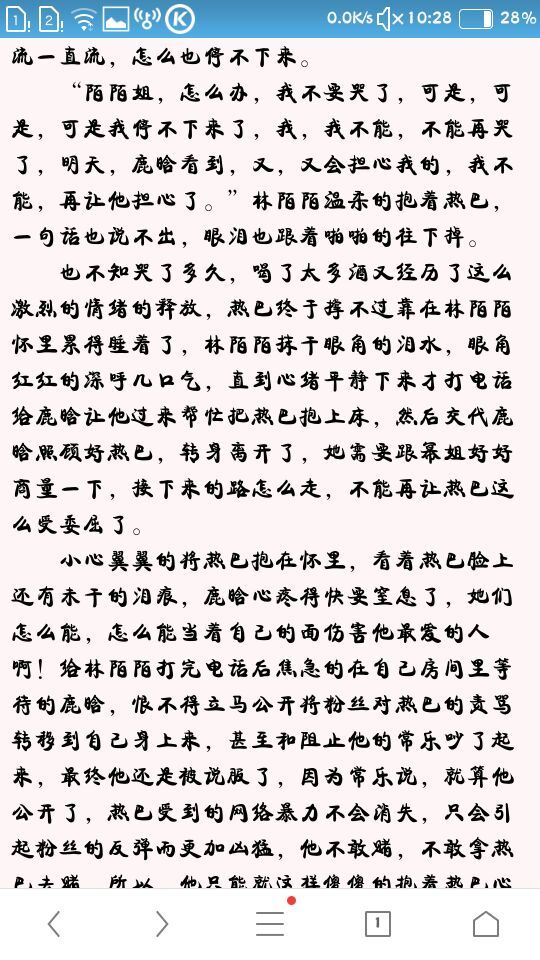 1 2 K 0.0K/s 10:28 28%
流一直流，怎么也停不下来。
“陌陌姐，怎么办，我不要哭了，可是，可
是，可是我停不下来了，我，我不能，不能再哭
了，明天，鹿晗看到，又，又会担心我的，我不
能，再让他担心了。”林陌陌温柔的抱着热巴，
一句话也说不出，眼泪也跟着啪啪的往下掉。
也不知哭了多久，喝了太多酒又经历了这么
激烈的情绪的释放，热巴终于撑不过靠在林陌陌
怀里累得睡着了，林陌陌抹干眼角的泪水，眼角
红红的深呼几口气，直到心绪平静下来才打电话
给鹿晗让他过来帮忙把热巴抱上床，然后交代鹿
晗照顾好热巴，转身离开了，她需要跟幂姐好好
商量一下，接下来的路怎么走，不能再让热巴这
么受委屈了。
小心翼翼的将热巴抱在怀里，看着热巴脸上
还有未干的泪痕，鹿晗心疼得快要窒息了，她们
怎么能，怎么能当着自己的面伤害他最爱的人
啊！给林陌陌打完电话后焦急的在自己房间里等
待的鹿晗，恨不得立马公开将粉丝对热巴的责骂
转移到自己身上来，甚至和阻止他的常乐吵了起
来，最终他还是被说服了，因为常乐说，就算他
公开了，热巴受到的网络暴力不会消失，只会引
起粉丝的反弹而更加凶猛，他不敢赌，不敢拿热
巴去赌，所以，他只能就这样傻傻的抱着热巴心
1